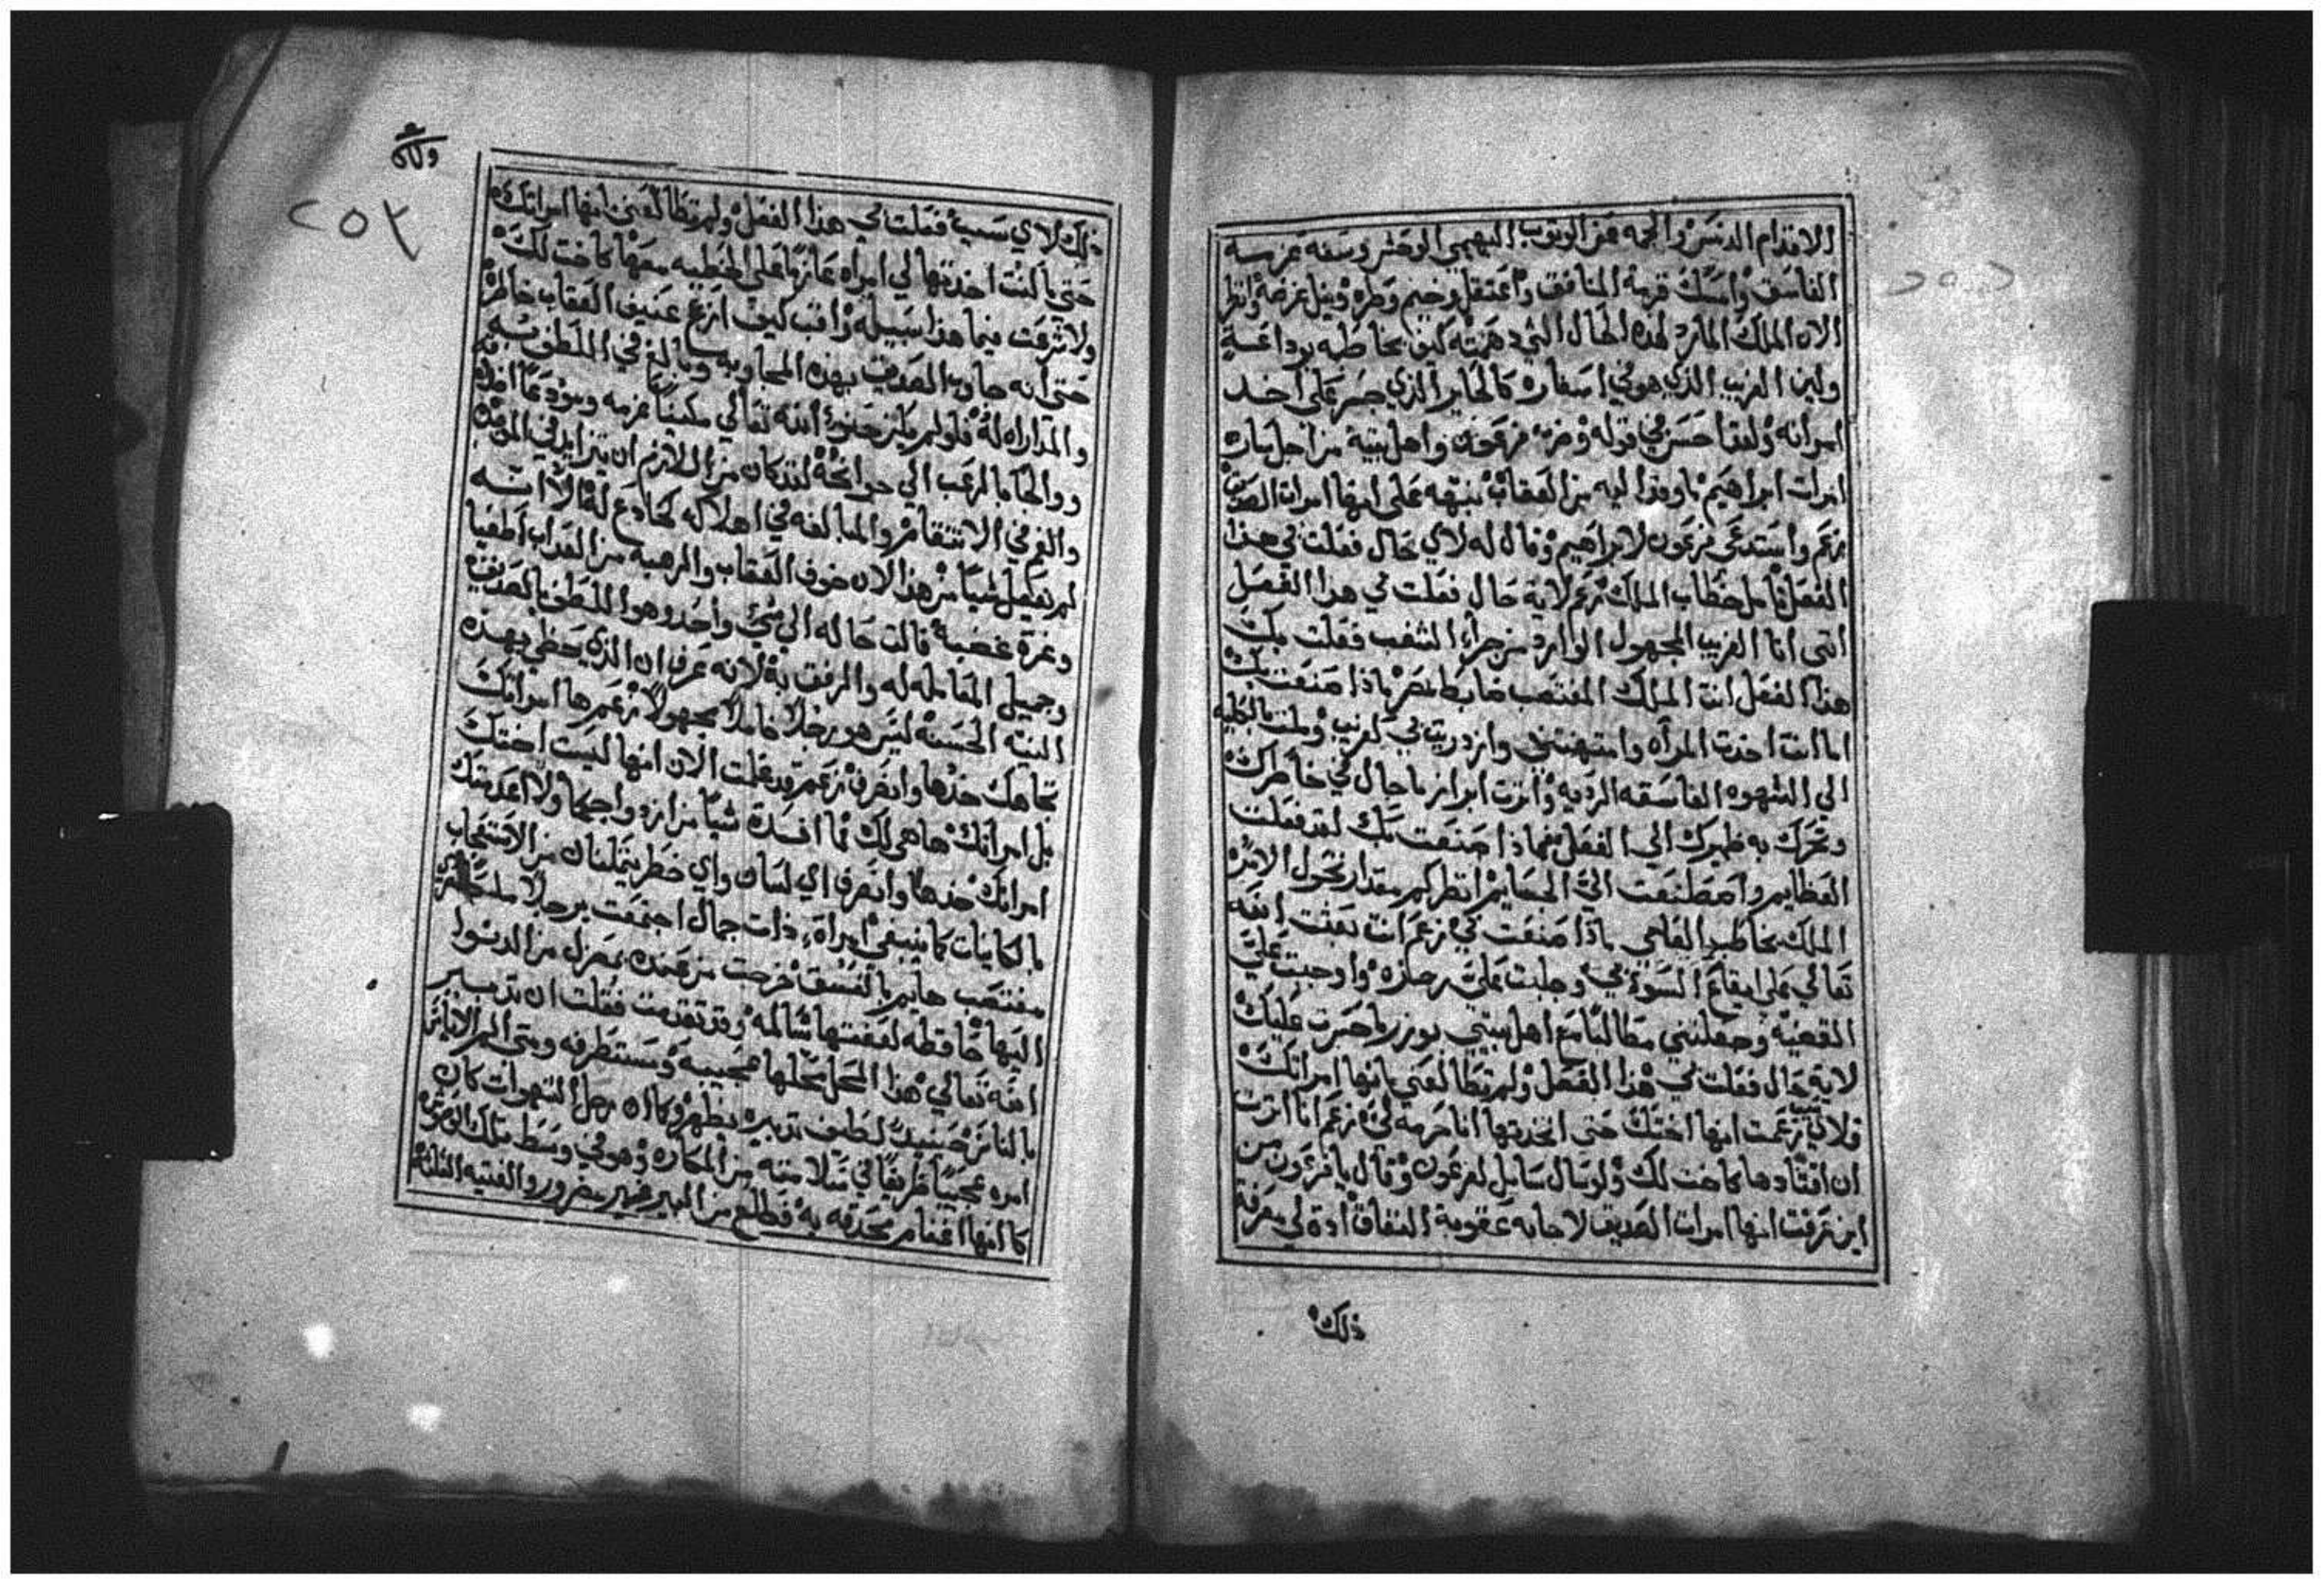 الاقدام الدنس والجمه عن الوتوب البهيمي الوحش وسعة غرسه
الفاسق وامسك قرمة المنافق واعتقل وخيم وطره ونيل غرضه وانظر
الان الملك المارد لهذه الحال التي دهمته كيف يخاطبه بوداعة
ولين الغريب الذي هو في اسفاره كالحاير الذي جسر على اخد
امراته ولعقا حسن في قوله وضرب فرعون واهل بيته من اجل سارة
امرات ابراهيم ما وفد اليه من العقاب نبهه على انها امرات الصديق
زعم واستدعى فرعون لابراهيم وقال له لاي حال فعلت بي هذا
الفعل تامل خطاب الملك زعم لاية حال فعلت بي هذا الفعل
اتى انا الغريب المجهول الوارد من جراء الشغب فعلت بك
هذا الفعل انت الملك المغتصب ضابط مصر ماذا صنعت بك
اما انت اخدت المراه وامتهنتني وازدريت بي كغريب وملت بالكليه
الي الشهوه الفاسقه الرديه واثرت ابراز ما جال في خاطرك
وتحرك به ضميرك الي الفعل فماذا صنعت بك لقد فعلت
العظايم واصطنعت الي الجسايم انظر كم مقدار تحول الامره
الملك يخاطب العامي ماذا صنعت بي زعم انت بعثت الله
تعالي على ايقاع السؤ بي وجلبت علي رجزه واوجبت علي
القضيه وجعلتني مطالبا مع اهل بيتي بوزر ما جسرت عليك
لاية حال فعلت بي هذا الفعل ولم تطالعني بانها امراتك
فلاي سبب زعمت انها اختك حتى اتخدتها انا حرمه لي زعم انا اثرت
ان اقتادها كاخت لك ولو سال سايل لفرعون وقال يا فرعون من
اين عرفت انها امرات الصديق لاجابه عقوبة النفاق ادة لي معرفة
ذلك
وكان
٢٥٣
ذلك لاي سبب فعلت بي هذا الفعل ولم تطالعني انها امراتك
حتى ما كنت اخدتها لي امراه عازما على الخطيه معها كاخت لك
ولا شرعت فيما هذا سبيله واقب كيف ارع عنيف العقاب خاطره
حتى انه جاوب الصديق بهذه المجاوبه وبالغ في التلطف به
والمداراه له فلو لم يكن حنو الله تعالي مسكنا عزمه ومودعا افكاره
والحاما لرعب الي جوانحه لقد كان من اللازم ان يتزايد في الموجده
والغ في الانتقام والمبالغه في اهلاك كخادع له الا انه
لم يفعل شيا من هذا لان خوف العقاب والرهبه من العداب اطفيا
وغرة غضبه فالت حاله الي شئ واحد وهو التلطف بالصديق
وجميل المعامله له والرفق به لانه عرف ان الذي يحظي بهذه
البنته الحسنه ليس هو رجلا خاملا مجهولا زعم ها امراتك
تجاهك خدها وانصرف زعم قد علمت الان انها ليست اختك
بل امراتك ها هي لك ما افسدت شيا من ازدواجكما ولا اعدمتك
امراتك خدها وانصرف اي لسان واي خطر يتمكنان من الاستعجاب
بالكاينات كما ينبغي امراة ذات جمال اجتمعت برجل ملك
مغتصب هايم بالفسق خرجت من عنده بمعزل من الدنس ولا
اليها حافظه لعفتها سالمه وقد تقدمت فقلت ان تدبير
الله تعالي هذا المحل محلها عجيبه ومستطرفه ومتى الم الاياس
بالناس حينيد لطيف تدبيره يظهر وكان رجل الشهوات كان
امره عجيبا ظريفا في سلامته من المكاره وهو في وسط تلك الوحوش
كانها اغنام محدقه به فطلع من البير غير مضرور والفتيه الثلثة